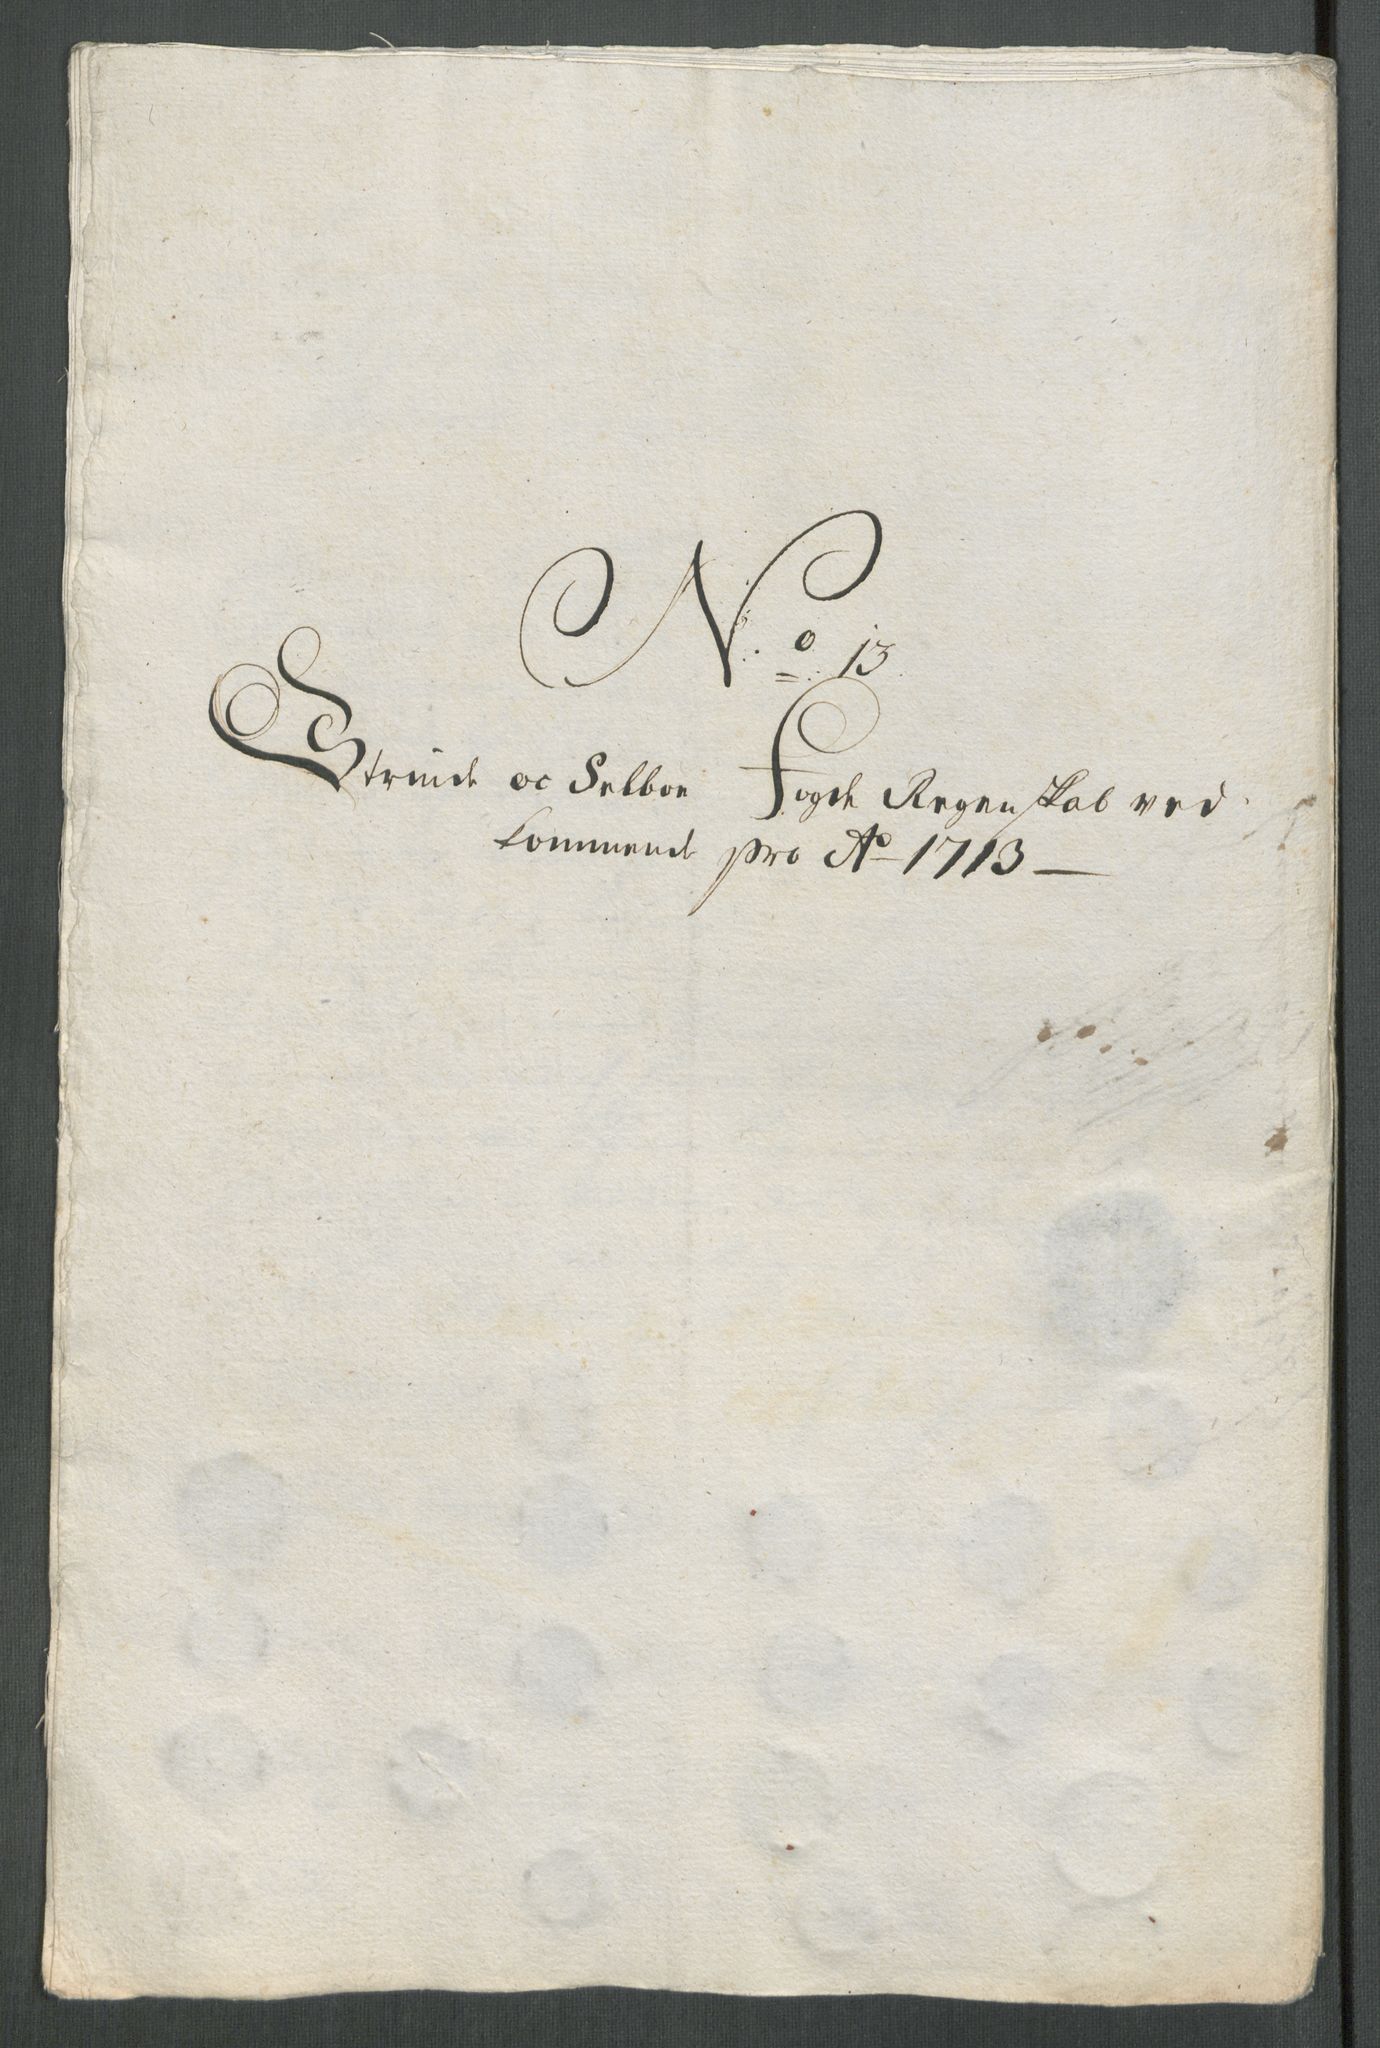 No. 13.
Strinde oc Selboe Fogde Regenskab ved
kommende pro Ao 1713